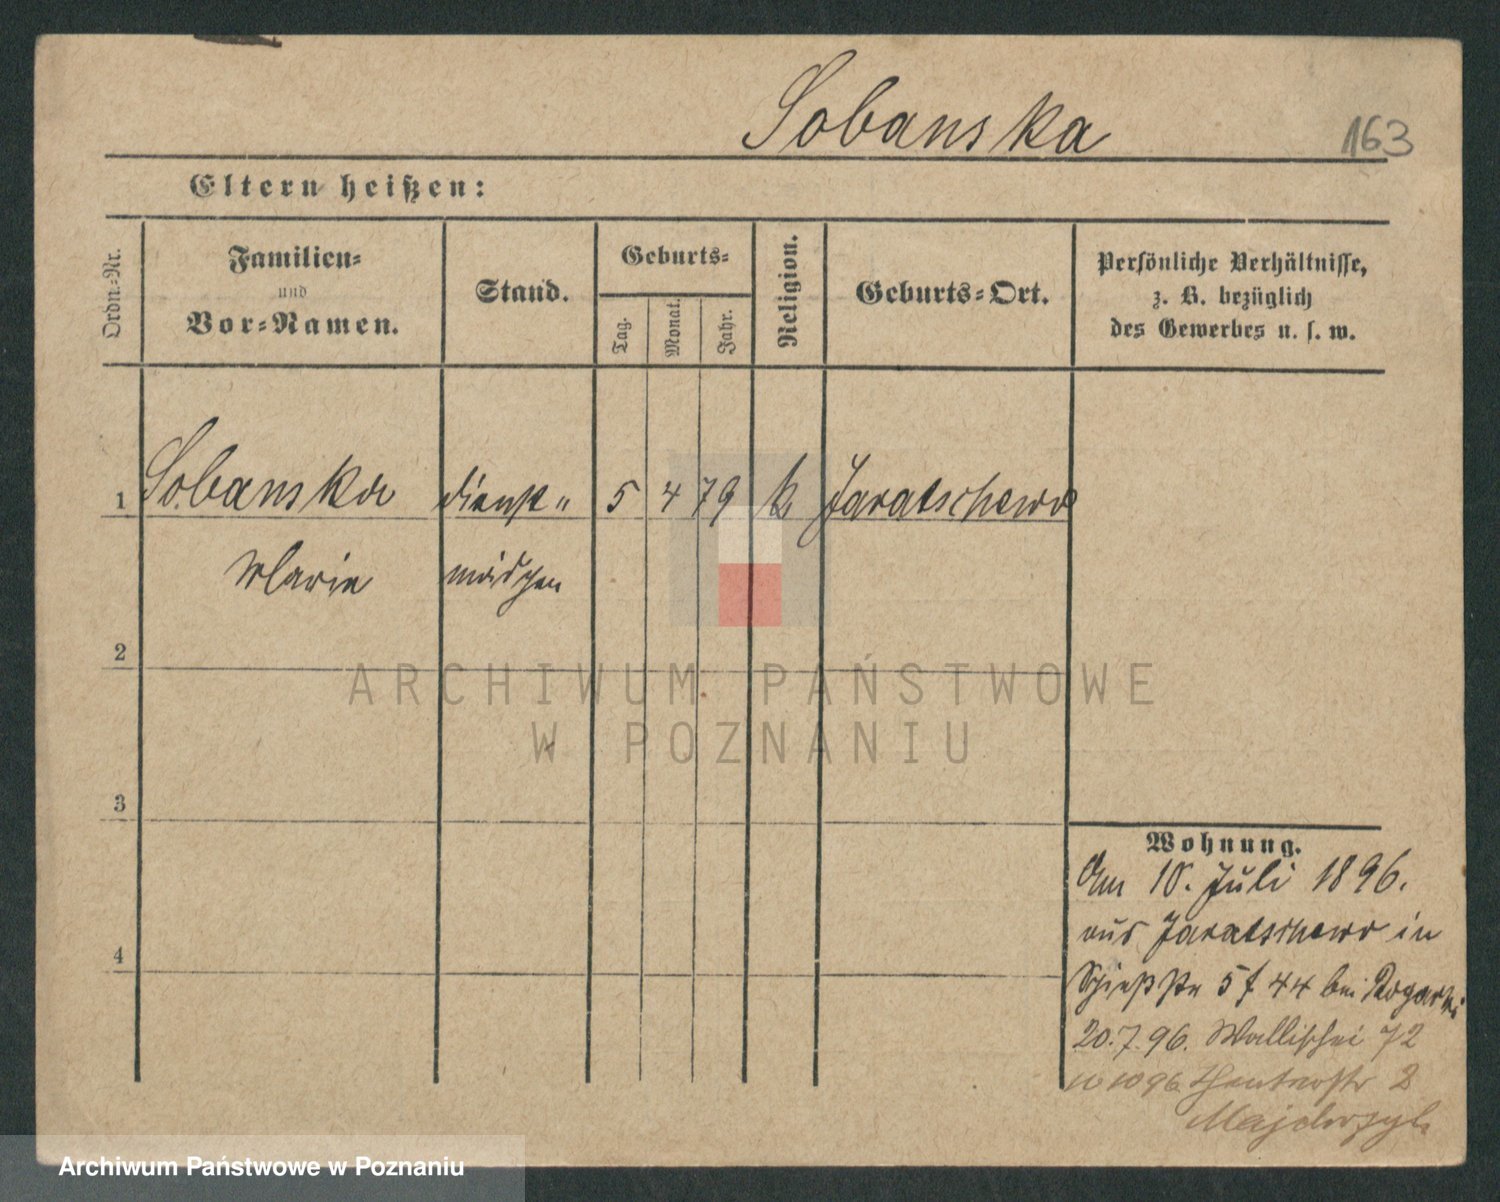 Sobanska
163
Eltern heißen:
Ordn.-Nr.
Familien-
und
Vor-Namen.
Stand.
Geburts-
Tag.
Monat.
Jahr.
Religion.
Geburts-Ort.
Persönliche Verhältnisse,
z. B. bezüglich
des Gewerbes u. s. w.
1 Sobanska dienst- 5 4 79 k Jaratschewo
Marie mädchen
2
3
4
Wohnung.
Am 10. Juli 1896.
aus Jaratschewo in
Schießstr 5 f 44 bei
20.7.96. Wallischei 72
10 10 96 str 2
ARCHIWUM PAŃSTWOWE
W POZNANIU
Archiwum Państwowe w Poznaniu